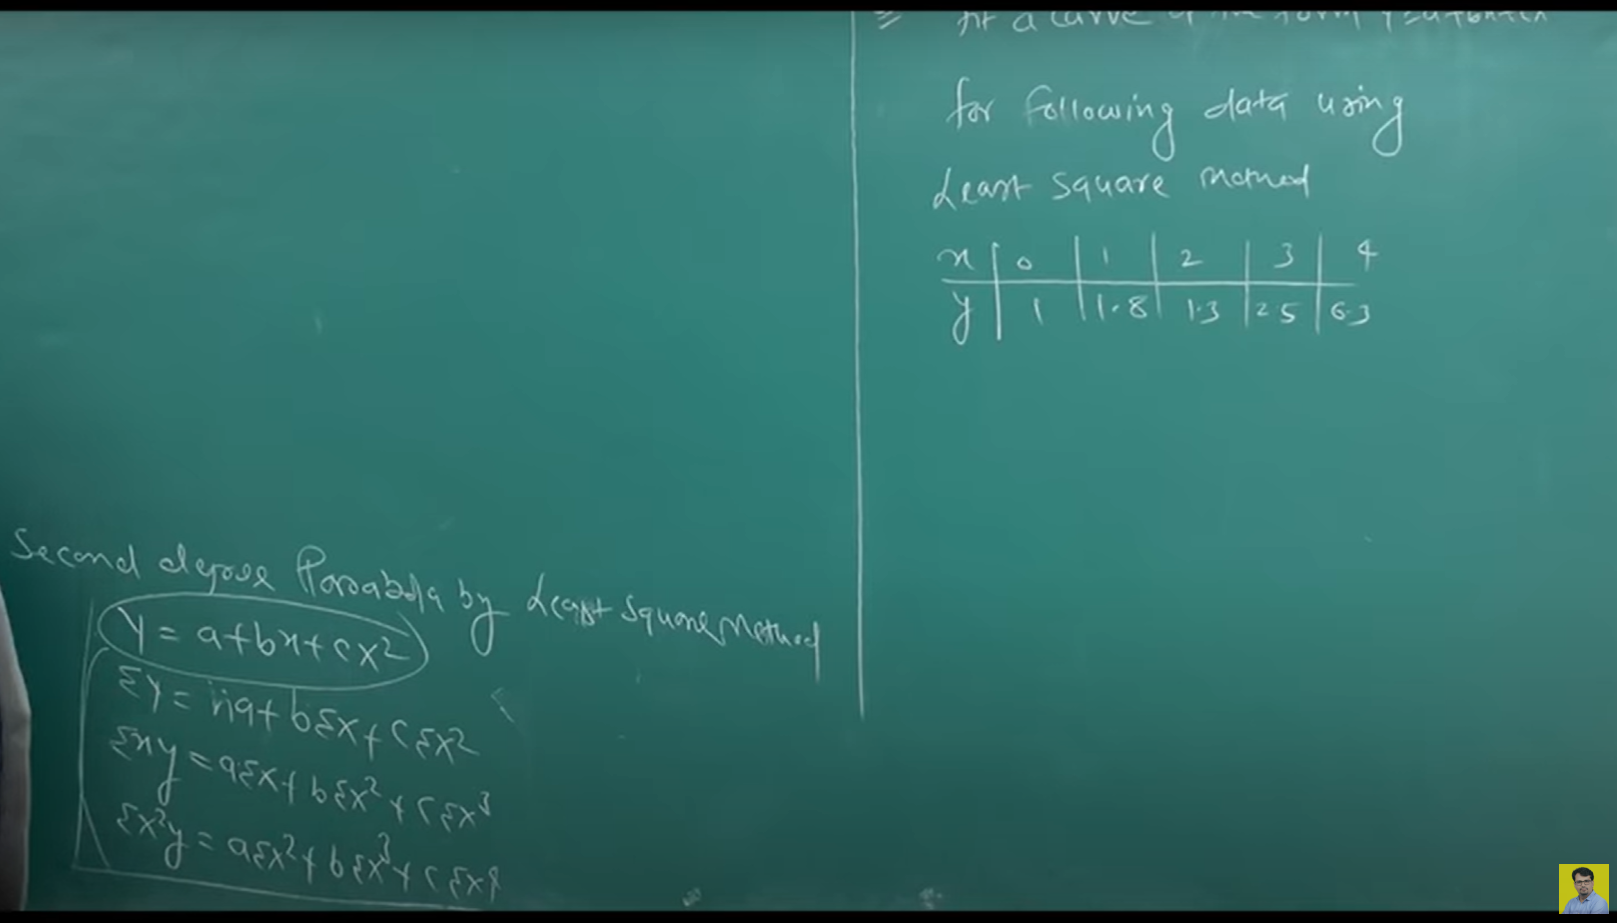 Second degree Parabola by Least Square Method
y = a+bx+cx²
Σy = na+bΣx+cΣx²
Σxy = aΣx+bΣx²+cΣx³
Σx²y = aΣx²+bΣx³+cΣx⁴
Fit a curve of the form
for following data using
Least Square Method
x | 0 | 1 | 2 | 3 | 4
y | 1 | 1.8 | 1.3 | 2.5 | 6.3